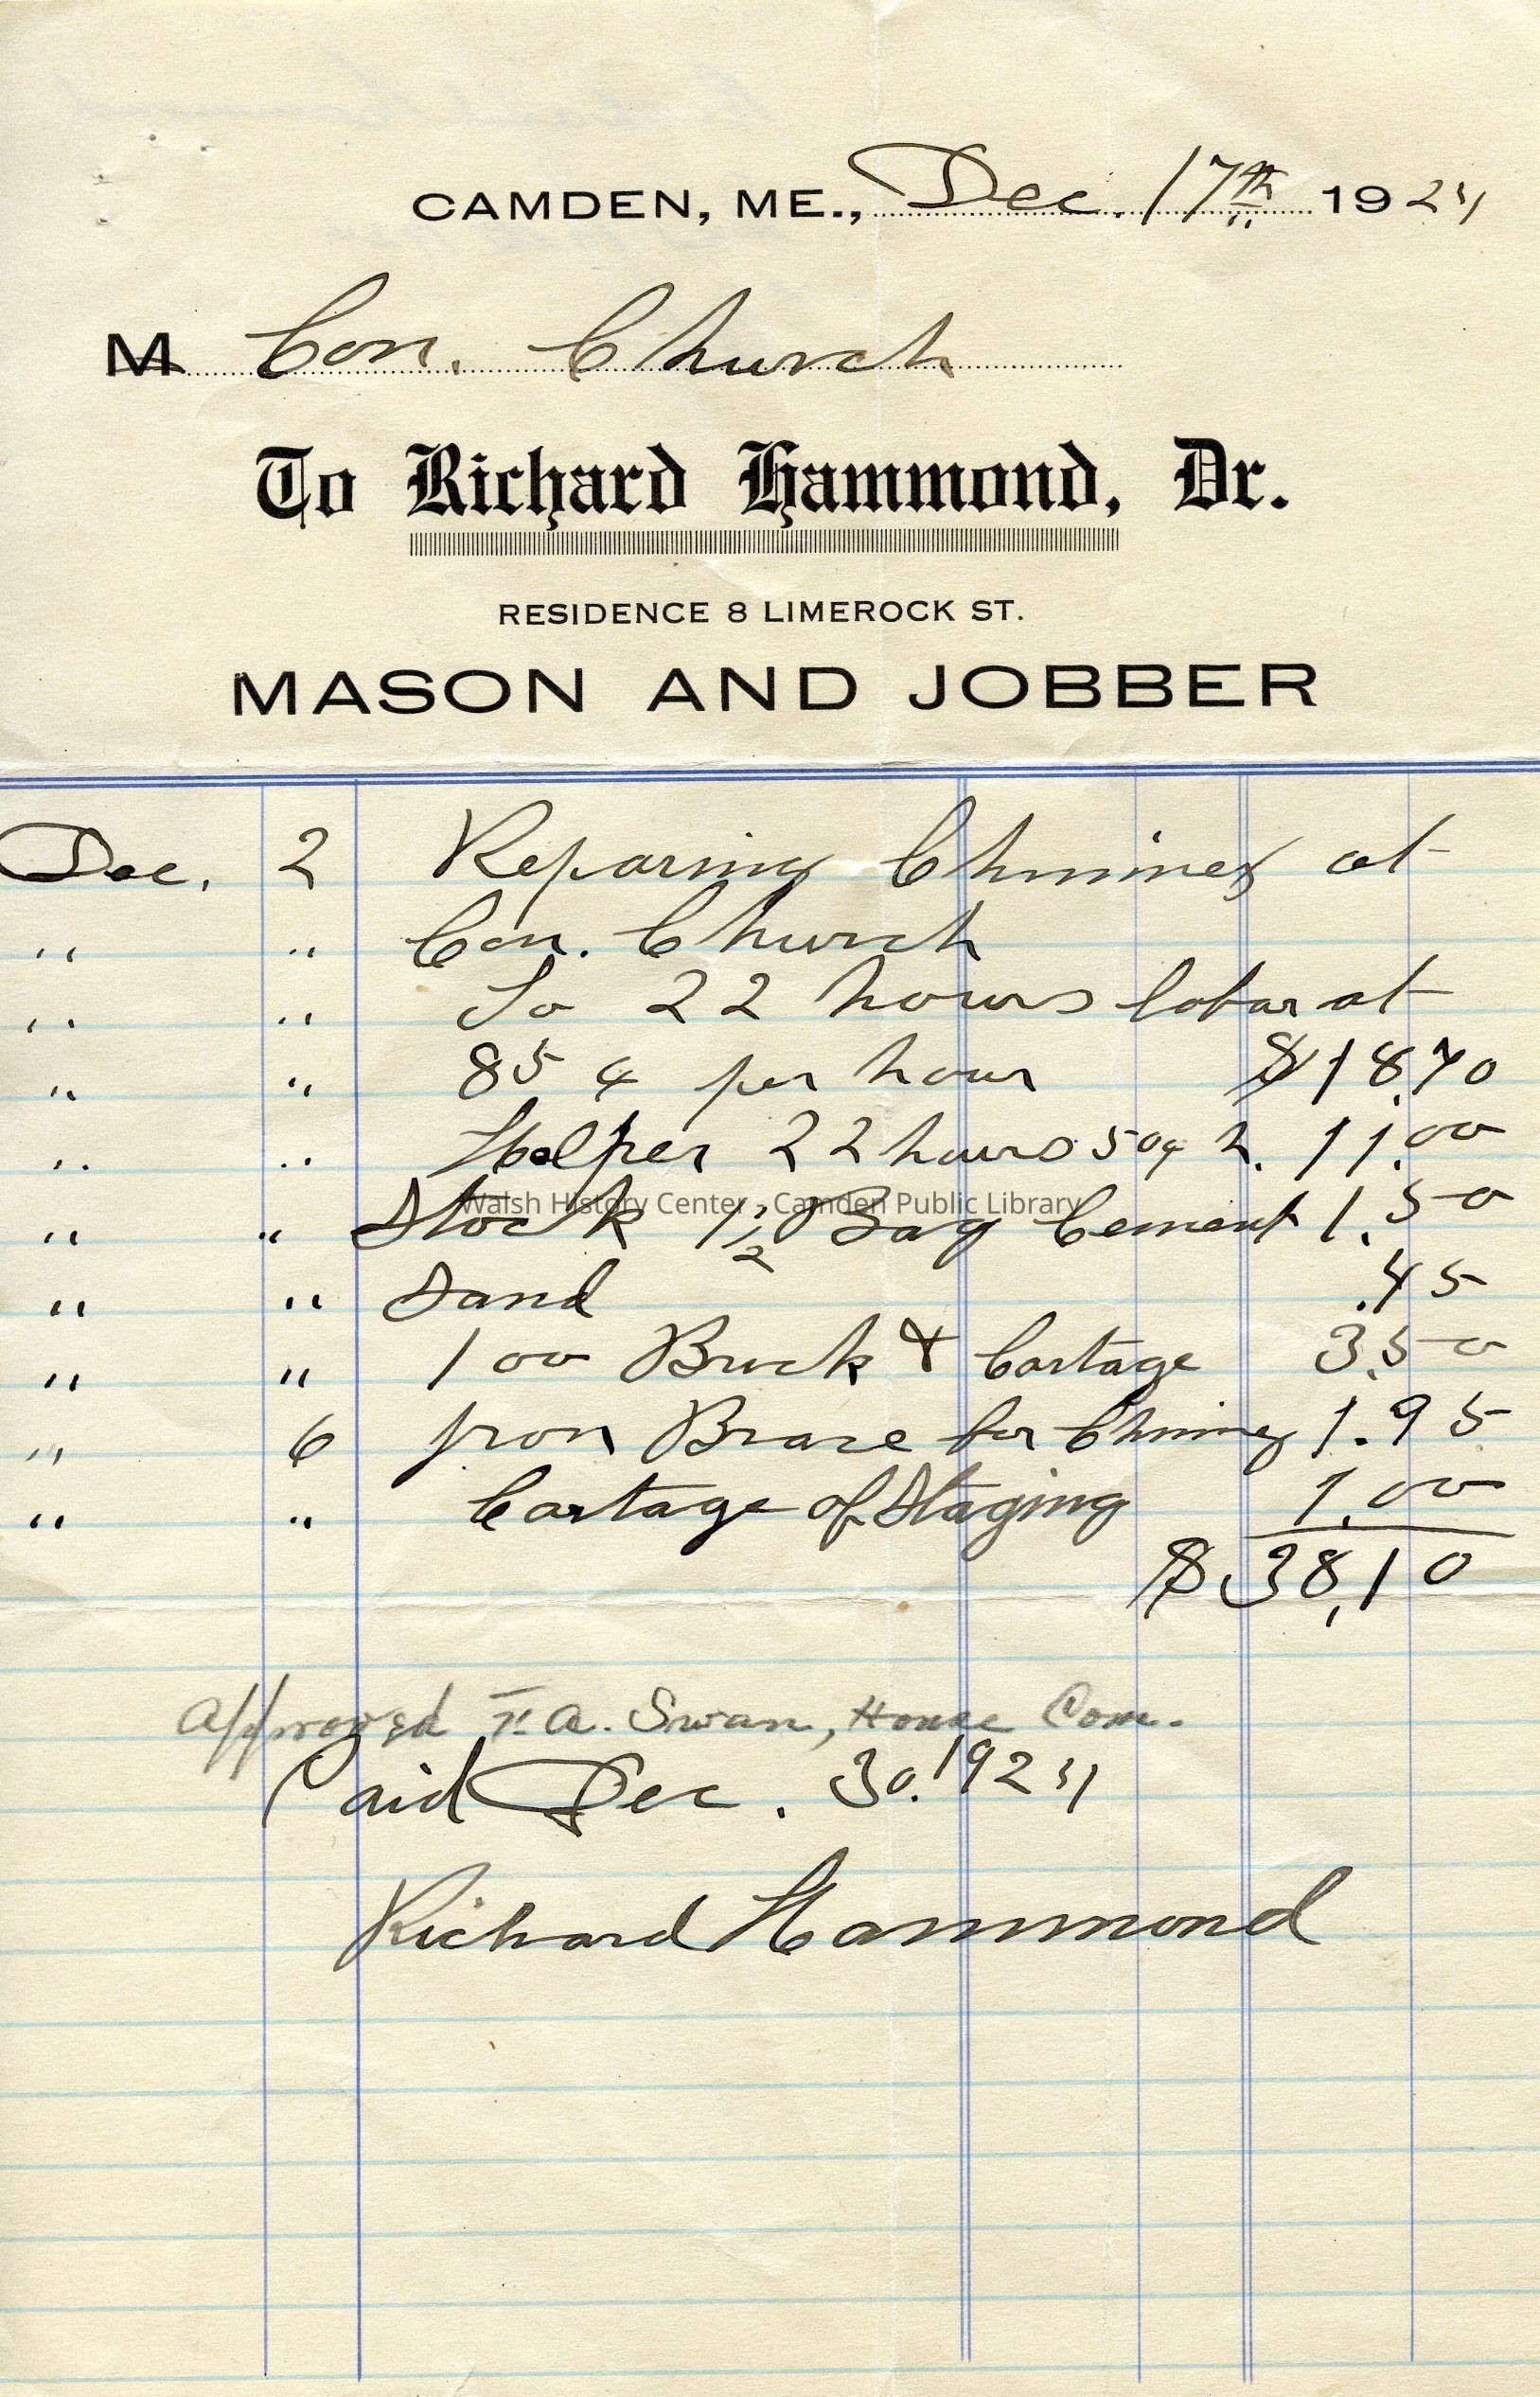 CAMDEN, ME., Dec. 17th 1924
M Con. Church
To Richard Hammond, Dr.
RESIDENCE 8 LIMEROCK ST.
MASON AND JOBBER
Dec. 2 Reparing Chminey at
" " Con. Church
" " To 22 hours labar at
" " 85 ¢ per hour $18.70
" " Helper 22 hours 50¢ h. 11.00
Walsh History Center - Camden Public Library
" " Stock 1 1/2 Bag Cement 1.50
" " Sand .45
" " 100 Brick & Cartage 3.50
" 6 Iron Brace for Chminey 1.95
" " Cartage of Staging 1.00
$38.10
Approved F. A. Swan, House Com.
Paid Dec. 30. 1924
Richard Hammond